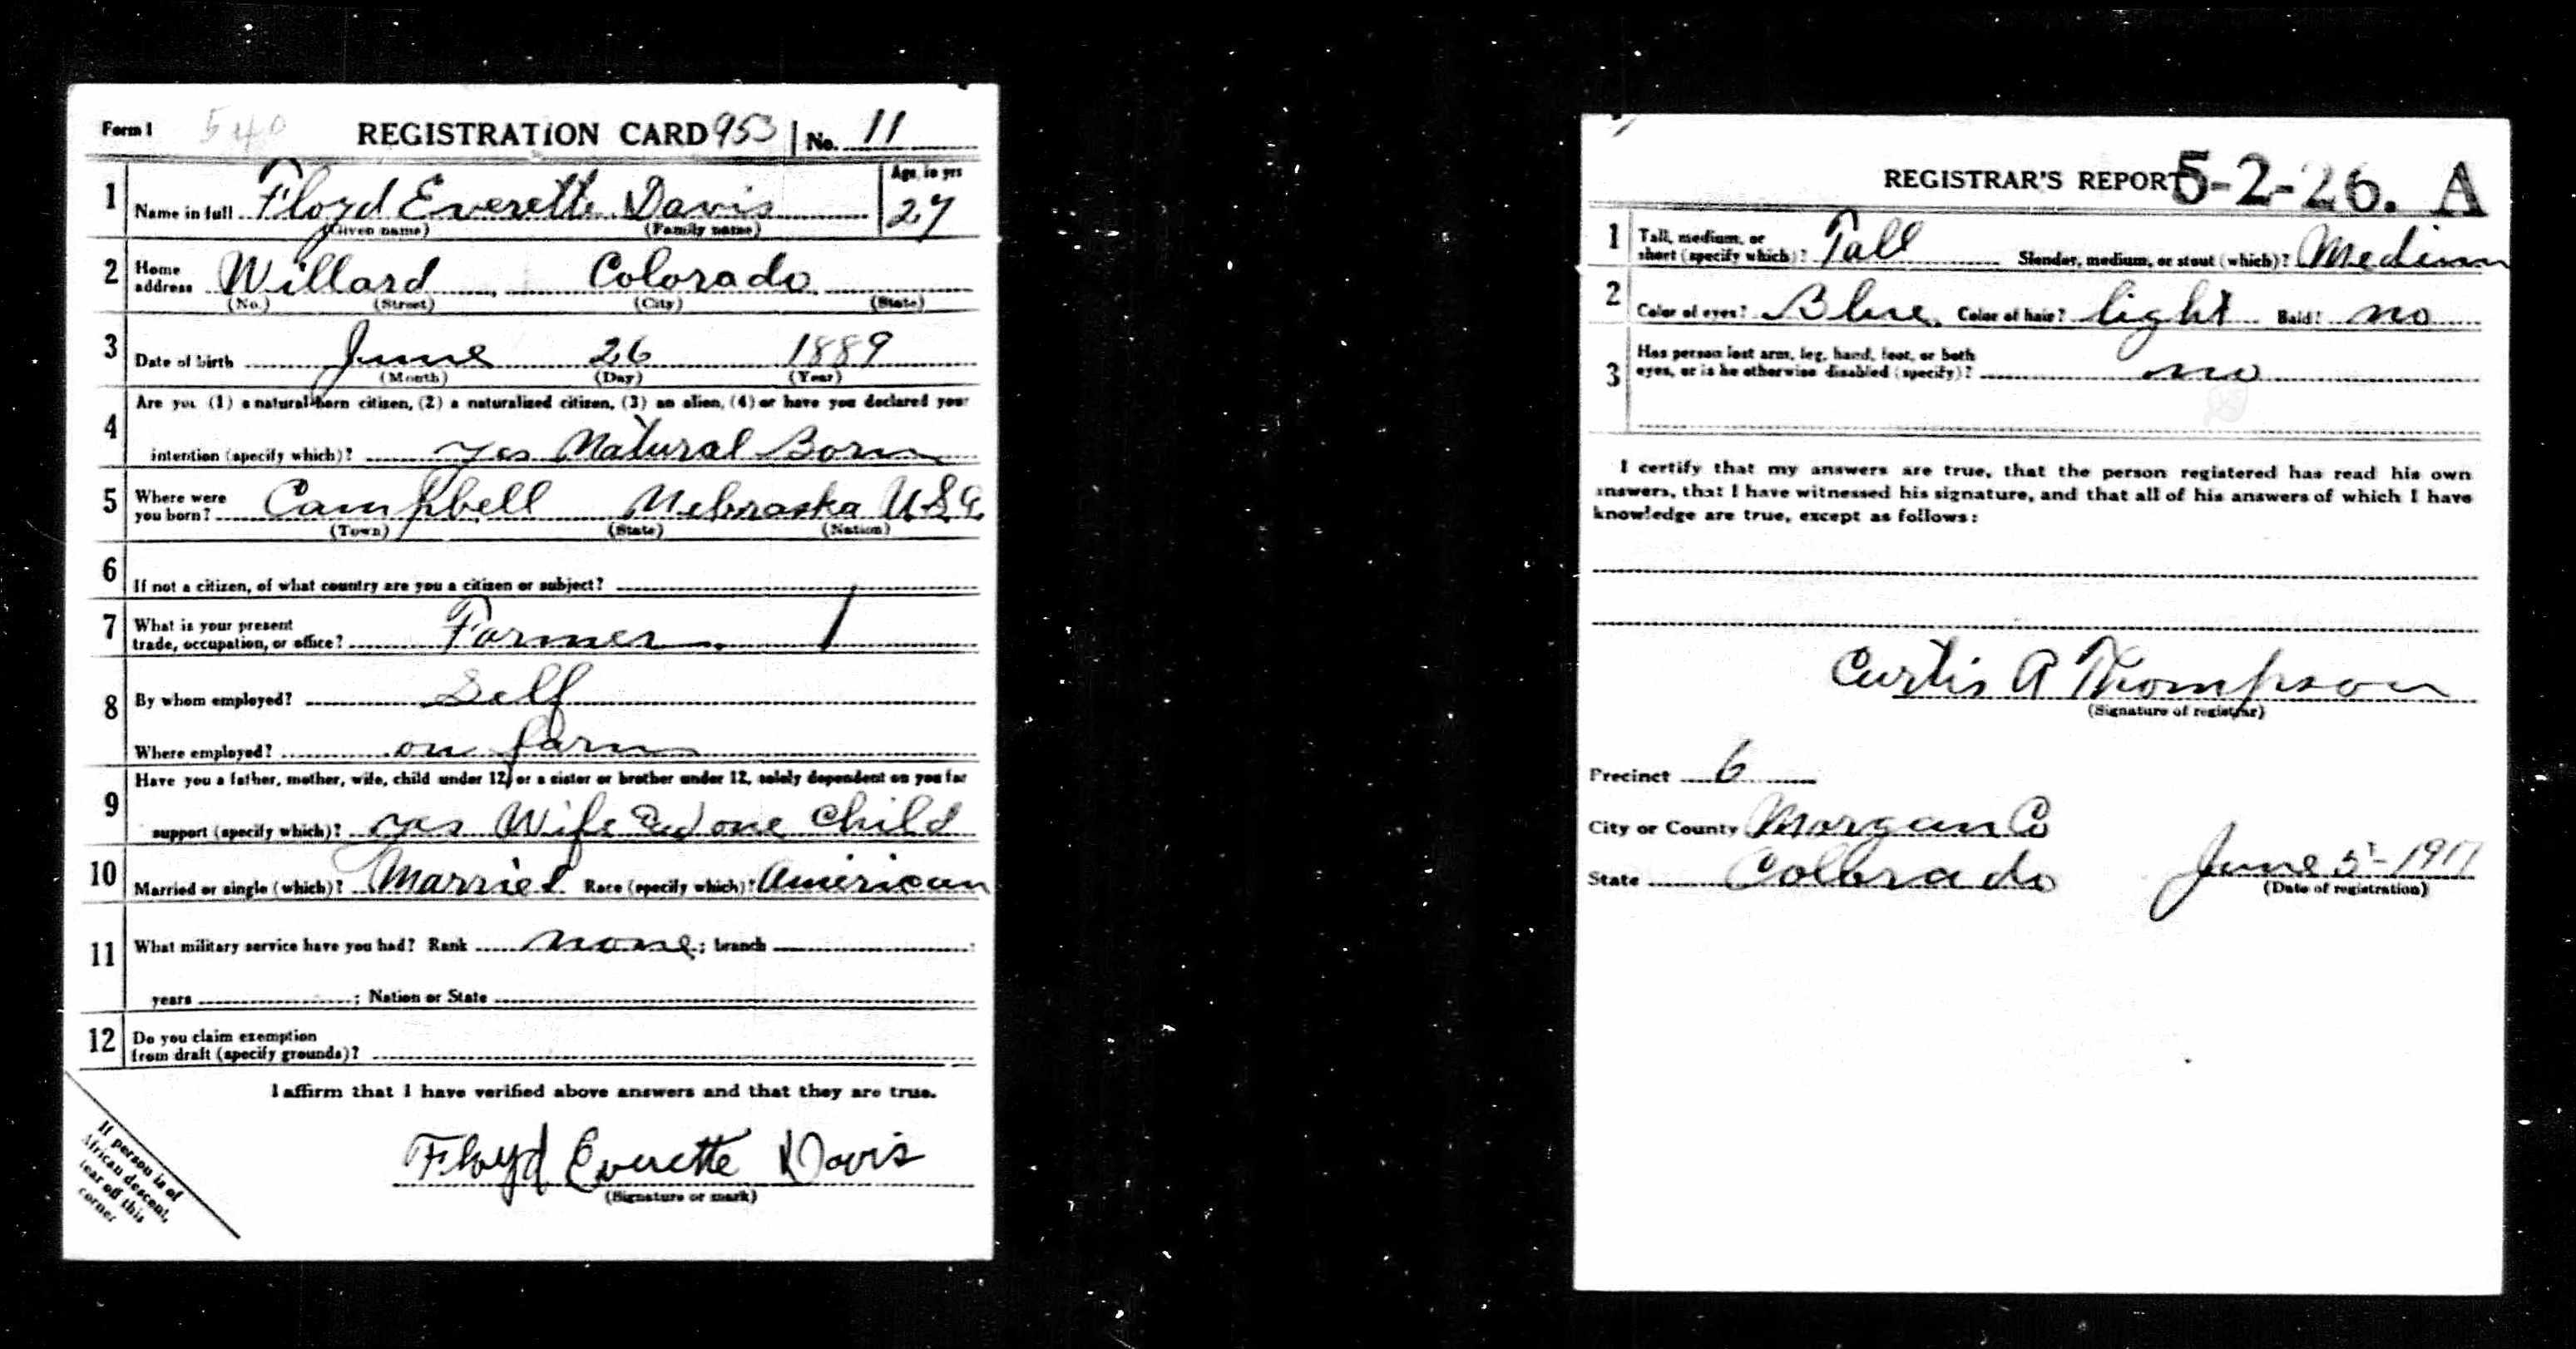 Form 1 540 REGISTRATION CARD 953 No. 11
1 Name in full Floyd Everette Davis Age, in yrs 27
(Given name) (Family name)
2 Home address Willard Colorado
(No.) (Street) (City) (State)
3 Date of birth June 26 1889
(Month) (Day) (Year)
4 Are you (1) a natural-born citizen, (2) a naturalized citizen, (3) an alien, (4) or have you declared your
intention (specify which)? yes Natural Born
5 Where were you born? Campbell Nebraska U.S.A.
(Town) (State) (Nation)
6 If not a citizen, of what country are you a citizen or subject?
7 What is your present
trade, occupation, or office? Farmer 1
8 By whom employed? Self
Where employed? on farm
9 Have you a father, mother, wife, child under 12, or a sister or brother under 12, solely dependent on you for
support (specify which)? yes Wife and one Child
10 Married or single (which)? Married Race (specify which)? American
11 What military service have you had? Rank none; branch
years ; Nation or State
12 Do you claim exemption
from draft (specify grounds)?
I affirm that I have verified above answers and that they are true.
Floyd Everette Davis
(Signature or mark)
If person is of
African descent,
tear off this
corner
REGISTRAR'S REPORT 5-2-26. A
1 Tall, medium, or
short (specify which)? Tall Slender, medium, or stout (which)? Medium
2 Color of eyes? Blue Color of hair? light Bald? no
3 Has person lost arm, leg, hand, foot, or both
eyes, or is he otherwise disabled (specify)? no
I certify that my answers are true, that the person registered has read his own
answers, that I have witnessed his signature, and that all of his answers of which I have
knowledge are true, except as follows:
Curtis A Thompson
(Signature of registrar)
Precinct 6
City or County Morgan Co
State Colorado June 5-1917
(Date of registration)